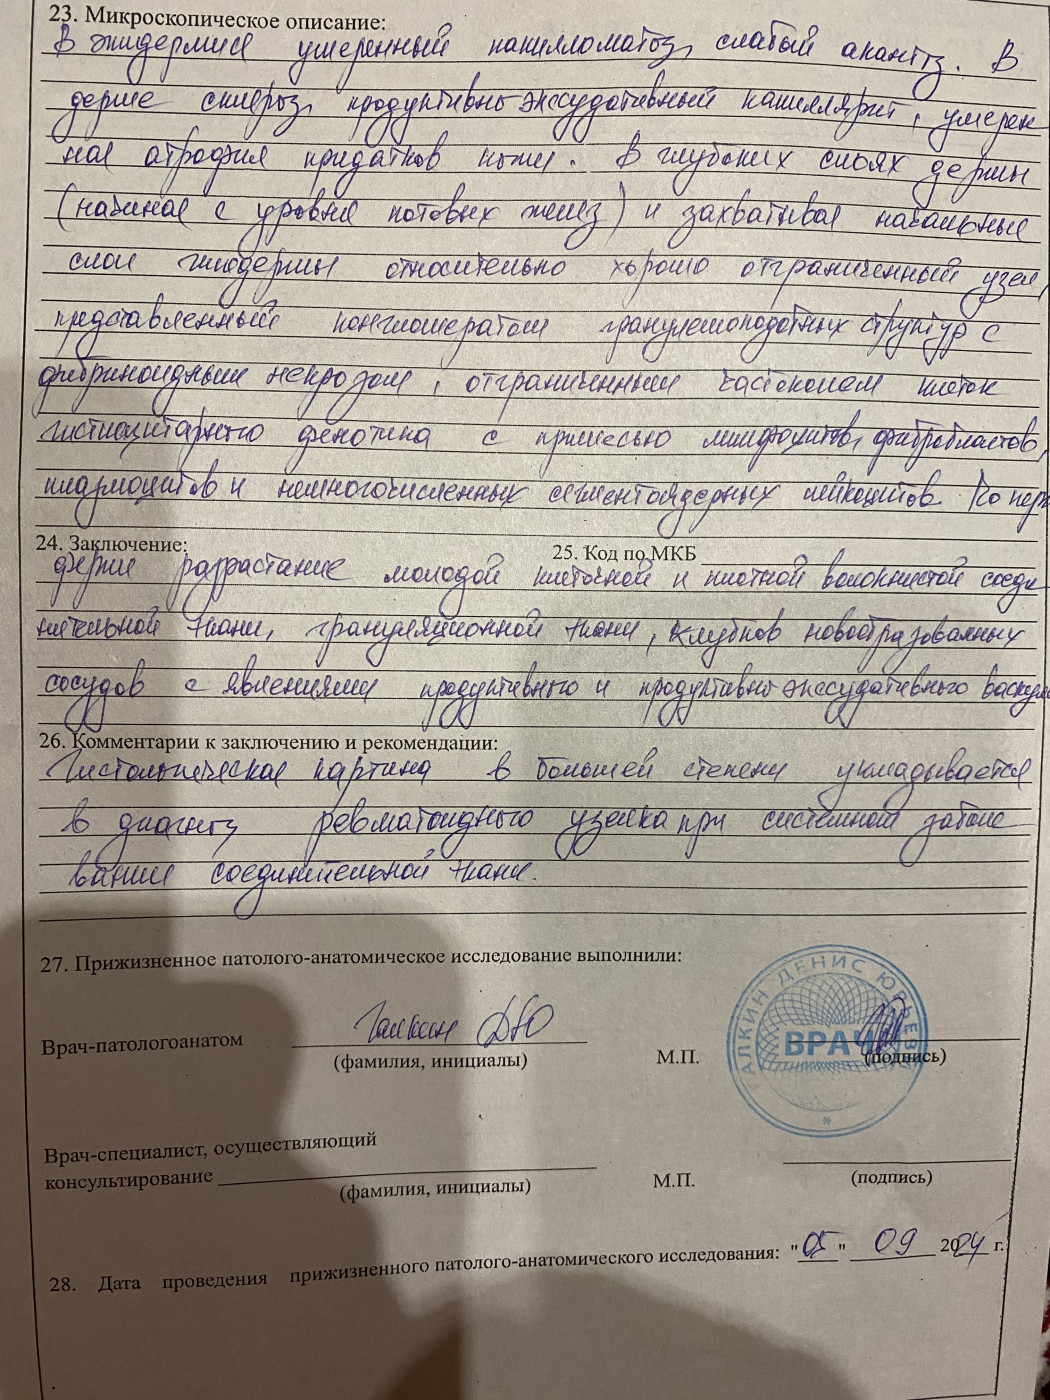 23. Микроскопическое описание:
В эпидермисе умеренный папилломатоз, слабый акантоз. В
дерме склероз, продуктивно-экссудативный капиллярит, умерен
ная атрофия придатков кожи. В глубоких слоях дермы
(начиная с уровня потовых желез) и захватывая начальные
слои гиподермы относительно хорошо отграниченный узел,
представленный конгломератом гранулемоподобных структур с
фибриноидным некрозом, отграниченным частоколом клеток
гистиоцитарного фенотипа с примесью лимфоцитов, фибробластов,
плазмоцитов и немногочисленных сегментоядерных лейкоцитов. По пери
24. Заключение:
25. Код по МКБ
ферии разрастание молодой клеточной и плотной волокнистой соеди
нительной ткани, грануляционной ткани, клубков новообразованных
сосудов с явлениями продуктивного и продуктивно-экссудативного васкули
26. Комментарии к заключению и рекомендации:
Гистологическая картина в большей степени укладывается
в диагноз ревматоидного узелка при системном заболе
вании соединительной ткани.
27. Прижизненное патолого-анатомическое исследование выполнили:
Врач-патологоанатом Галкин ДЮ
(фамилия, инициалы) М.П. (подпись)
ГАЛКИН ДЕНИС ЮРЬЕВ
ВРАЧ
Врач-специалист, осуществляющий
консультирование
(фамилия, инициалы) М.П. (подпись)
28. Дата проведения прижизненного патолого-анатомического исследования: "05" 09 2024 г.